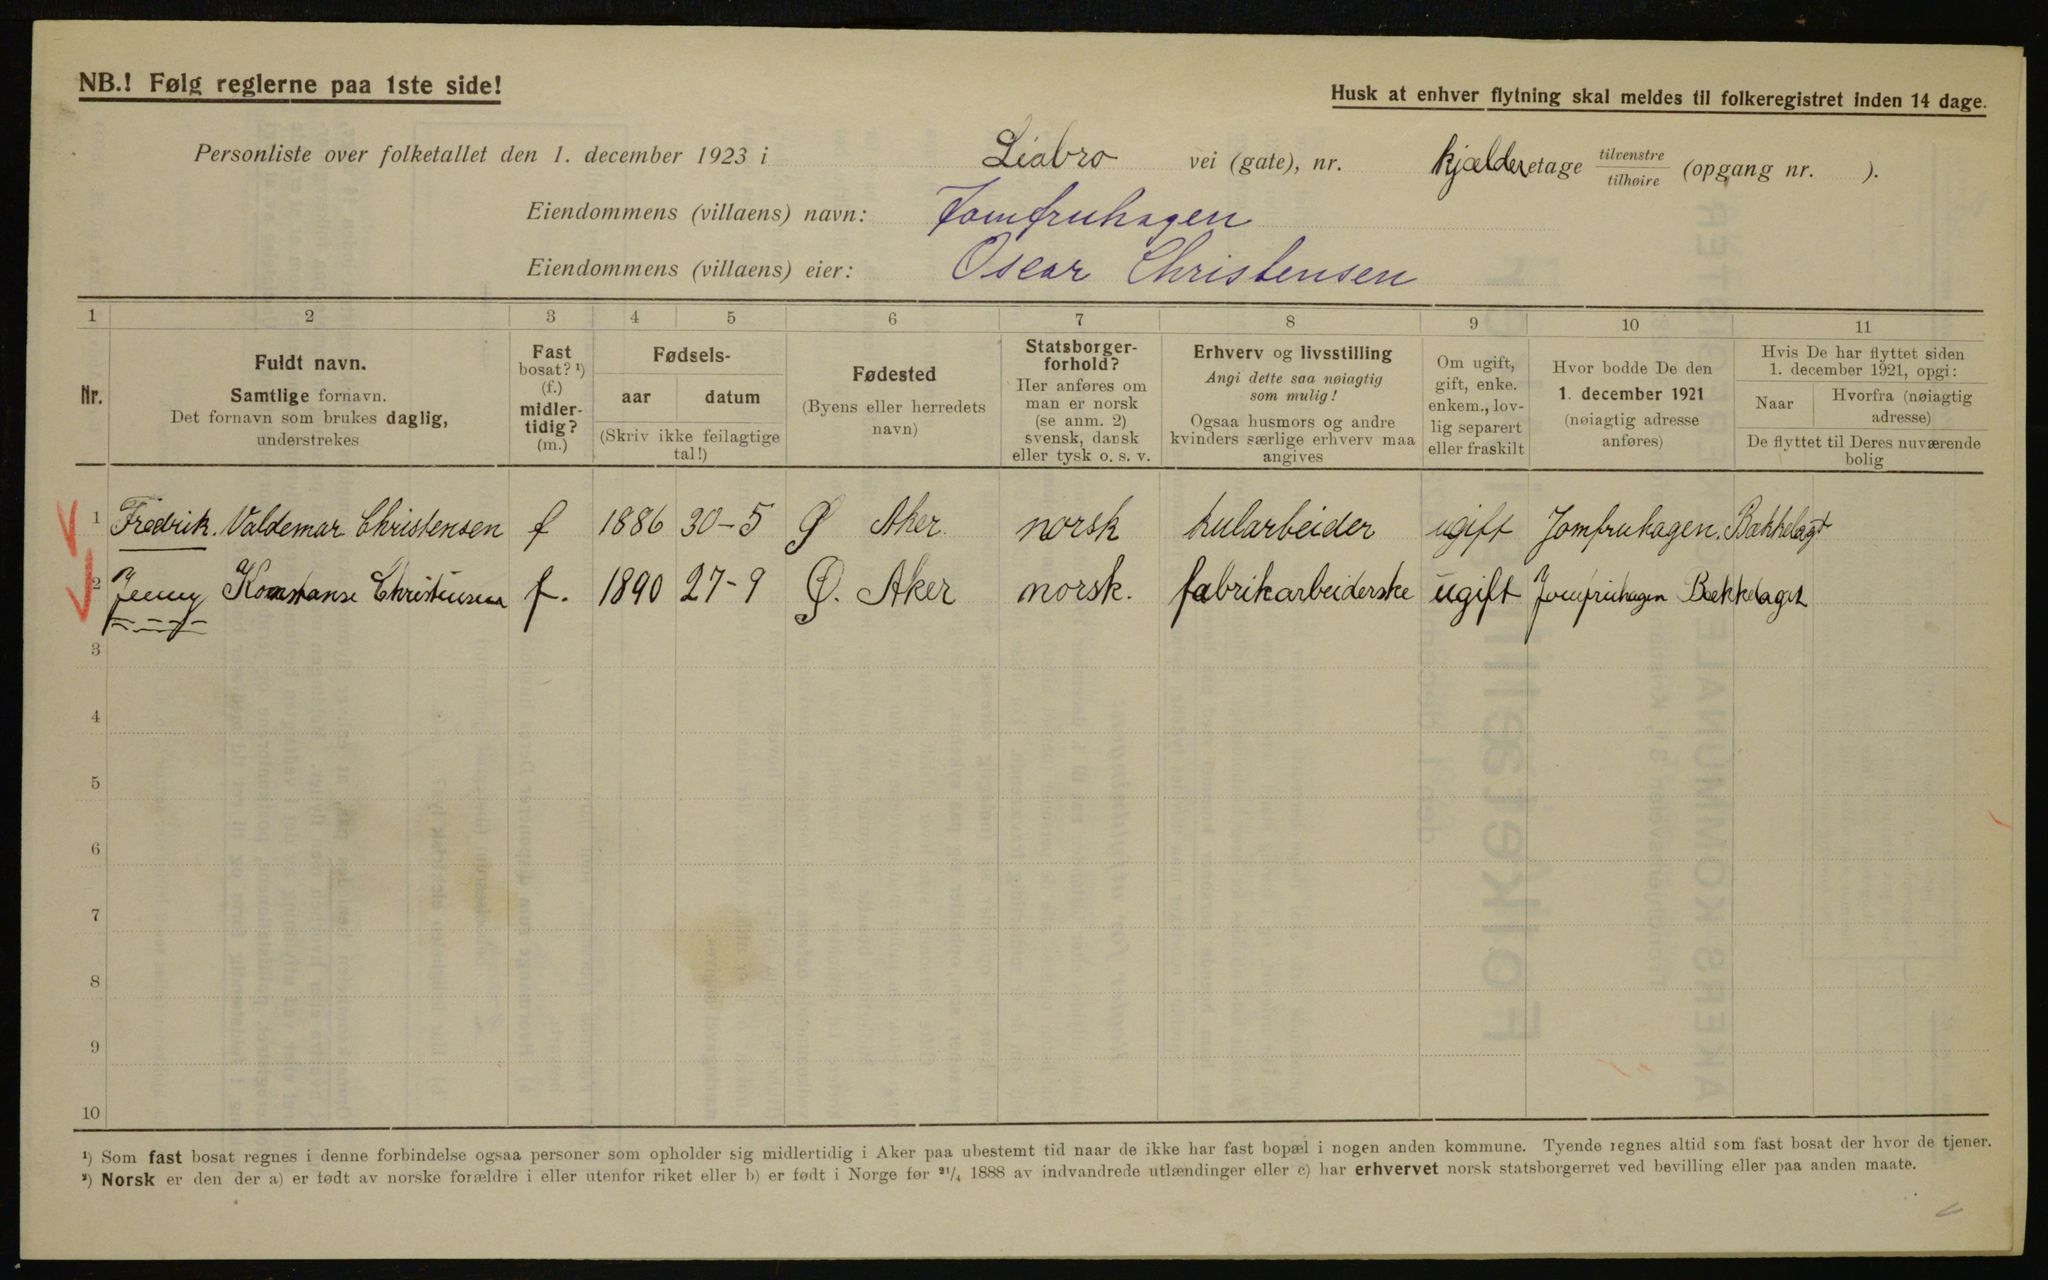 NB.! Følg reglerne paa 1ste side!
Husk at enhver flytning skal meldes til folkeregistret inden 14 dage.
Personliste over folketallet den 1. december 1923 i Liabro vei (gate), nr. kjælderetage tilvenstre / tilhøire (opgang nr. ).
Eiendommens (villaens) navn: Jomfruhagen
Eiendommens (villaens) eier: Oscar Christensen
1 2 3 4 5 6 7 8 9 10 11
Nr.
Fuldt navn.
Samtlige fornavn.
Det fornavn som brukes daglig,
understrekes
Fast
bosat? ¹)
(f.)
midler-
tidig?
(m.)
Fødsels-
aar datum
(Skriv ikke feilagtige
tal!)
Fødested
(Byens eller herredets
navn)
Statsborger-
forhold?
Her anføres om
man er norsk
(se anm. 2)
svensk, dansk
eller tysk o. s. v.
Erhverv og livsstilling
Angi dette saa nøiagtig
som mulig!
Ogsaa husmors og andre
kvinders særlige erhverv maa
angives
Om ugift,
gift, enke.
enkem., lov-
lig separert
eller fraskilt
Hvor bodde De den
1. december 1921
(nøiagtig adresse
anføres)
Hvis De har flyttet siden
1. december 1921, opgi:
Naar Hvorfra (nøiagtig
adresse)
De flyttet til Deres nuværende
bolig
1 Fredrik. Valdemar Christensen f 1886 30-5 Ø Aker norsk kularbeider ugift Jomfruhagen. Bækkelagt
2 Jenny Konstanse Christensen f. 1890 27-9 Ø. Aker norsk. fabrikarbeiderske ugift Jomfruhagen Bækkelaget
3
4
5
6
7
8
9
10
¹) Som fast bosat regnes i denne forbindelse ogsaa personer som opholder sig midlertidig i Aker paa ubestemt tid naar de ikke har fast bopæl i nogen anden kommune. Tyende regnes altid som fast bosat der hvor de tjener.
²) Norsk er den der a) er født av norske forældre i eller utenfor riket eller b) er født i Norge før ²¹/₄ 1888 av indvandrede utlændinger eller c) har erhvervet norsk statsborgerret ved bevilling eller paa anden maate.